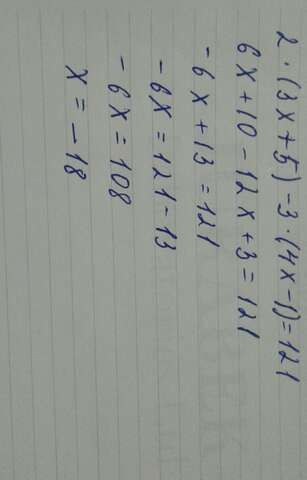 2·(3x+5)-3·(4x-1)=121
6x+10-12x+3=121
-6x+13=121
-6x=121-13
-6x=108
x=-18